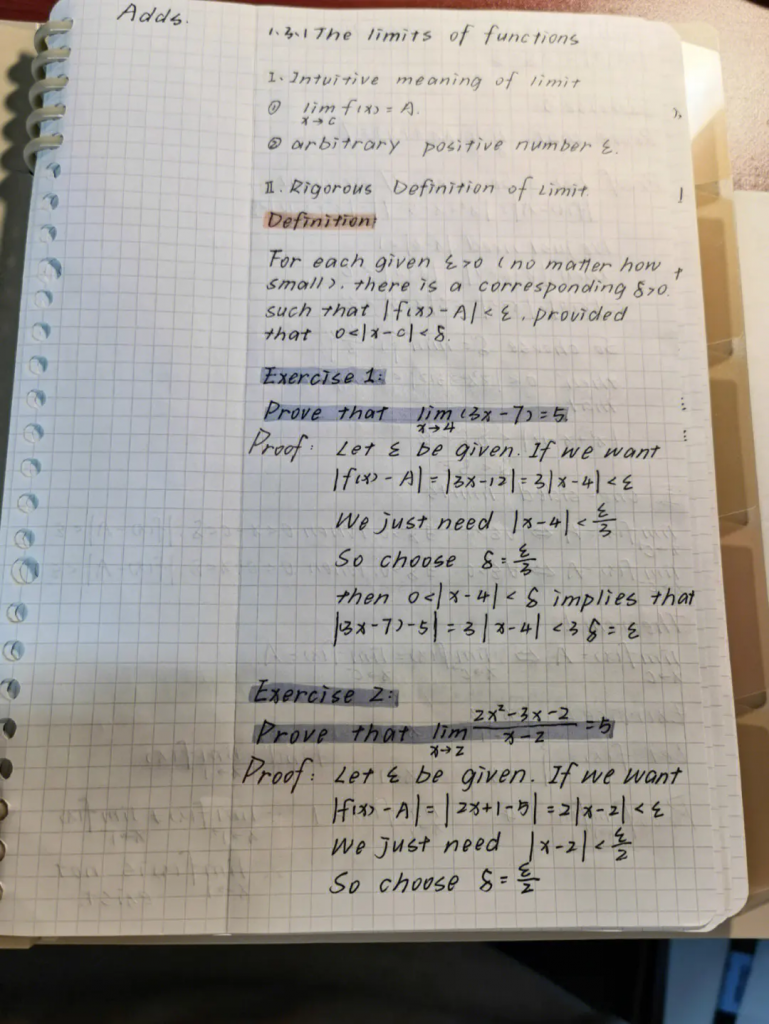 Adds.
1.3.1 The limits of functions
I. Intuitive meaning of limit
① lim f(x) = A.
x→c
② arbitrary positive number ε.
II. Rigorous Definition of Limit
Definition:
For each given ε>0 (no matter how
small), there is a corresponding δ>0.
such that |f(x) - A| < ε, provided
that 0<|x-c|<δ.
Exercise 1:
Prove that lim (3x-7)=5.
x→4
Proof: Let ε be given. If we want
|f(x) - A| = |3x-12| = 3|x-4| < ε
We just need |x-4| < ε/3
So choose δ = ε/3
then 0<|x-4|< δ implies that
|(3x-7)-5| = 3|x-4| < 3δ = ε
Exercise 2:
Prove that lim (2x²-3x-2)/(x-2) = 5
x→2
Proof: Let ε be given. If we want
|f(x) - A| = |2x+1-5| = 2|x-2| < ε
We just need |x-2| < ε/2
So choose δ = ε/2